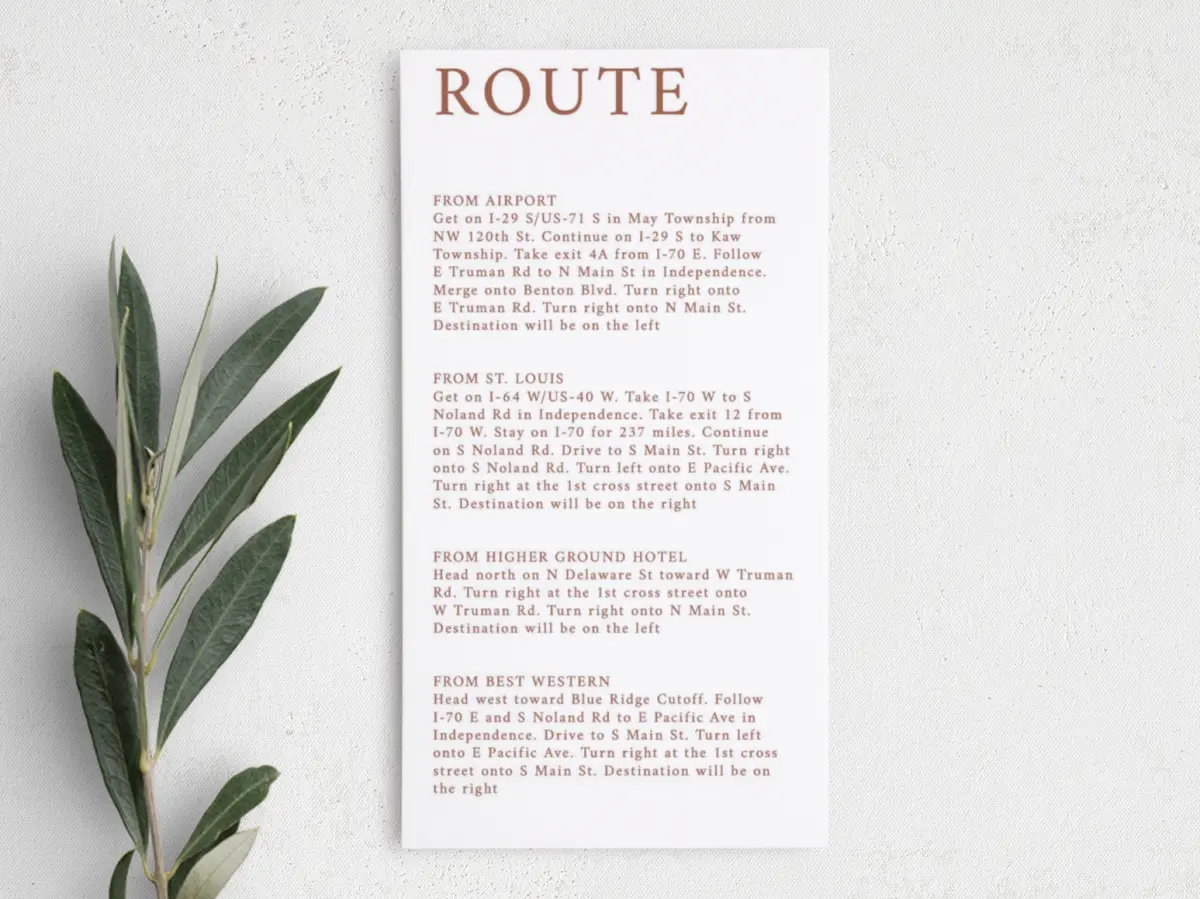 ROUTE
FROM AIRPORT
Get on I-29 S/US-71 S in May Township from
NW 120th St. Continue on I-29 S to Kaw
Township. Take exit 4A from I-70 E. Follow
E Truman Rd to N Main St in Independence.
Merge onto Benton Blvd. Turn right onto
E Truman Rd. Turn right onto N Main St.
Destination will be on the left
FROM ST. LOUIS
Get on I-64 W/US-40 W. Take I-70 W to S
Noland Rd in Independence. Take exit 12 from
I-70 W. Stay on I-70 for 237 miles. Continue
on S Noland Rd. Drive to S Main St. Turn right
onto S Noland Rd. Turn left onto E Pacific Ave.
Turn right at the 1st cross street onto S Main
St. Destination will be on the right
FROM HIGHER GROUND HOTEL
Head north on N Delaware St toward W Truman
Rd. Turn right at the 1st cross street onto
W Truman Rd. Turn right onto N Main St.
Destination will be on the left
FROM BEST WESTERN
Head west toward Blue Ridge Cutoff. Follow
I-70 E and S Noland Rd to E Pacific Ave in
Independence. Drive to S Main St. Turn left
onto E Pacific Ave. Turn right at the 1st cross
street onto S Main St. Destination will be on
the right